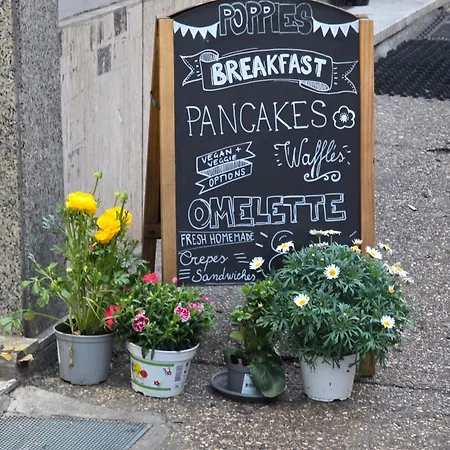 POPPIES
BREAKFAST
PANCAKES
VEGAN +
VEGGIE
OPTIONS
Waffles
OMELETTE
FRESH HOMEMADE
&
Crepes
SANDWICHES